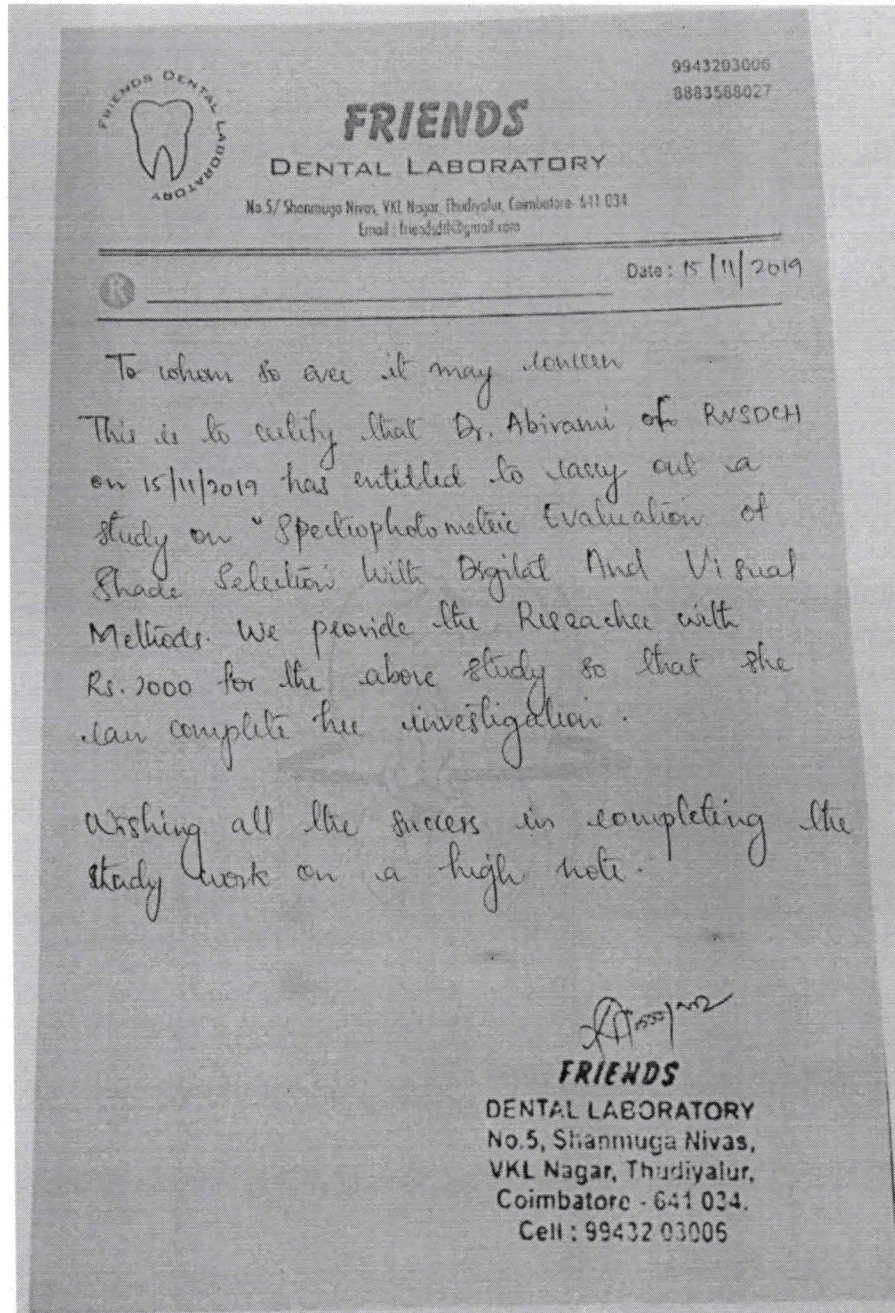 FRIENDS DENTAL LABORATORY
9943203006
8883588027
FRIENDS
DENTAL LABORATORY
No.5/ Shanmuga Nivas, VKL Nagar, Thudiyalur, Coimbatore- 641 034
Email : friendsdtl@gmail.com
Date : 15/11/2019
R
To whom so ever it may concern
This is to certify that Dr. Abirami of RVSDCH
on 15/11/2019 has entitled to carry out a
study on "Spectrophotometric Evaluation of
Shade Selection With Digital And Visual
Methods. We provide the Reseacher with
Rs. 2000 for the above study so that she
can complete her investigation.
Wishing all the success in completing the
study work on a high note.
FRIENDS
DENTAL LABORATORY
No.5, Shanmuga Nivas,
VKL Nagar, Thudiyalur,
Coimbatore - 641 034.
Cell : 99432 03006